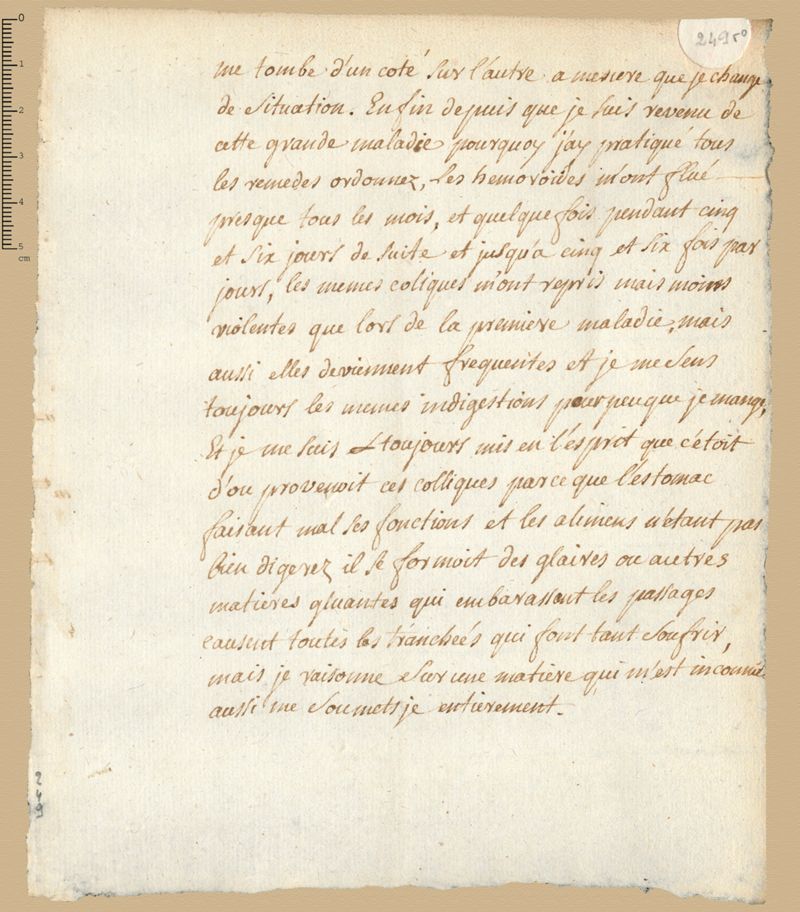 249 v°
me tombe d'un coté sur l'autre a mesure que je change
de situation. Enfin depuis que je suis revenu de
cette grande maladie pourquoy j'ay pratiqué tous
les remedes ordonnez, les hemoroïdes m'ont flué
presque tous les mois, et quelque fois pendant cinq
et six jours de suite et jusqu'a cinq et six fois par
jours, les memes coliques m'ont repris mais moins
violentes que lors de la premiere maladie, mais
aussi elles deviennent frequentes et je me sens
toujours les memes indigestions pour peu que je mange,
Et je me suis toujours mis en l'esprit que c'etoit
d'ou provenoit ces colliques parce que l'estomac
faisant mal ses fonctions et les alimens n'etant pas
bien digerez il se formoit des glaires ou autres
matieres gluantes qui embarassent les passages
causent toutes les tranchées qui font tant soufrir,
mais je raisonne sur une matière qui m'est inconnue
aussi me soumets je entierement.
249
0
1
2
3
4
5
cm